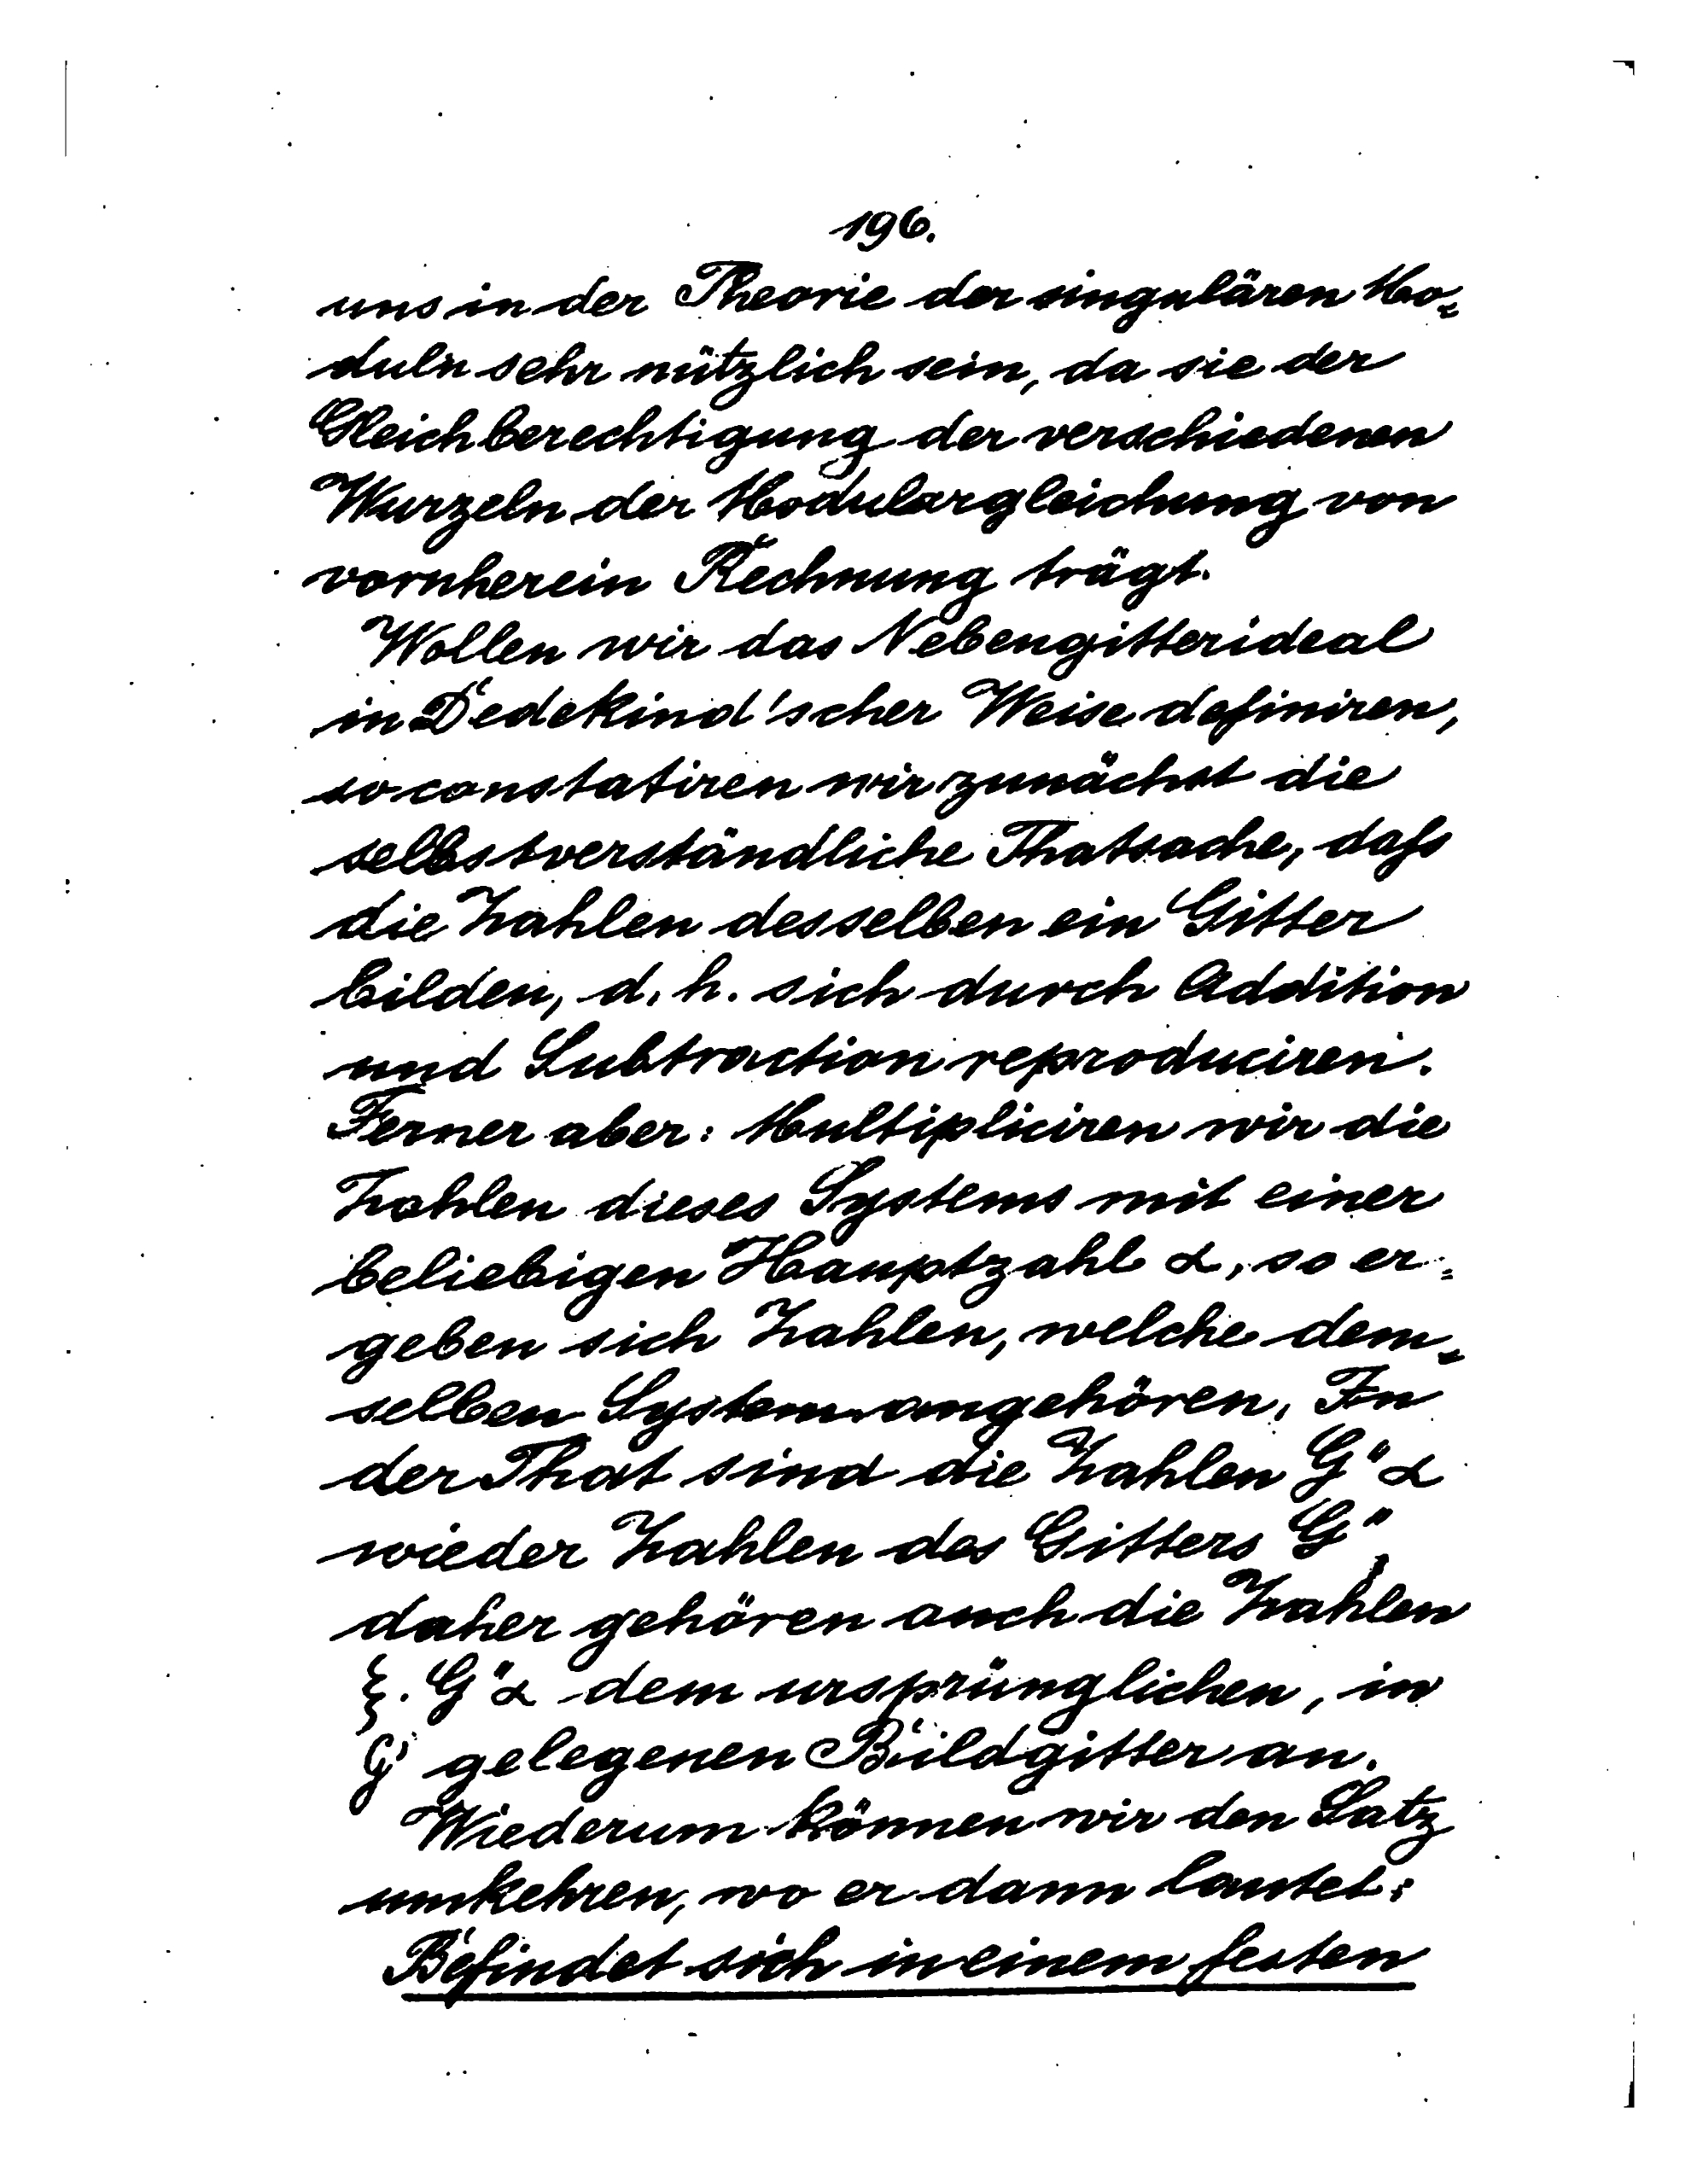 196.
uns in der Theorie der singulären Mo=
duln sehr nützlich sein, da sie der
Gleichberechtigung der verschiedenen
Wurzeln der Modulargleichung von
vornherein Rechnung trägt.
Wollen wir das Nebengitterideal
in Dedekind'scher Weise definiren,
so constatiren wir zunächst die
selbstverständliche Thatsache, dafs
die Zahlen desselben ein Gitter
bilden, d. h. sich durch Addition
und Subtraction reproduciren.
Ferner aber: Multipliciren wir die
Zahlen dieses Systems mit einer
beliebigen Hauptzahl α, so er=
geben sich Zahlen, welche dem=
selben System angehören. In
der That sind die Zahlen G"α
wieder Zahlen des Gitters G",
daher gehören auch die Zahlen
ξ. G"α dem ursprünglichen, in
G' gelegenen Bildgitter an.
Wiederum können wir den Satz
umkehren, wo er dann lautet:
Befindet sich in einem festen